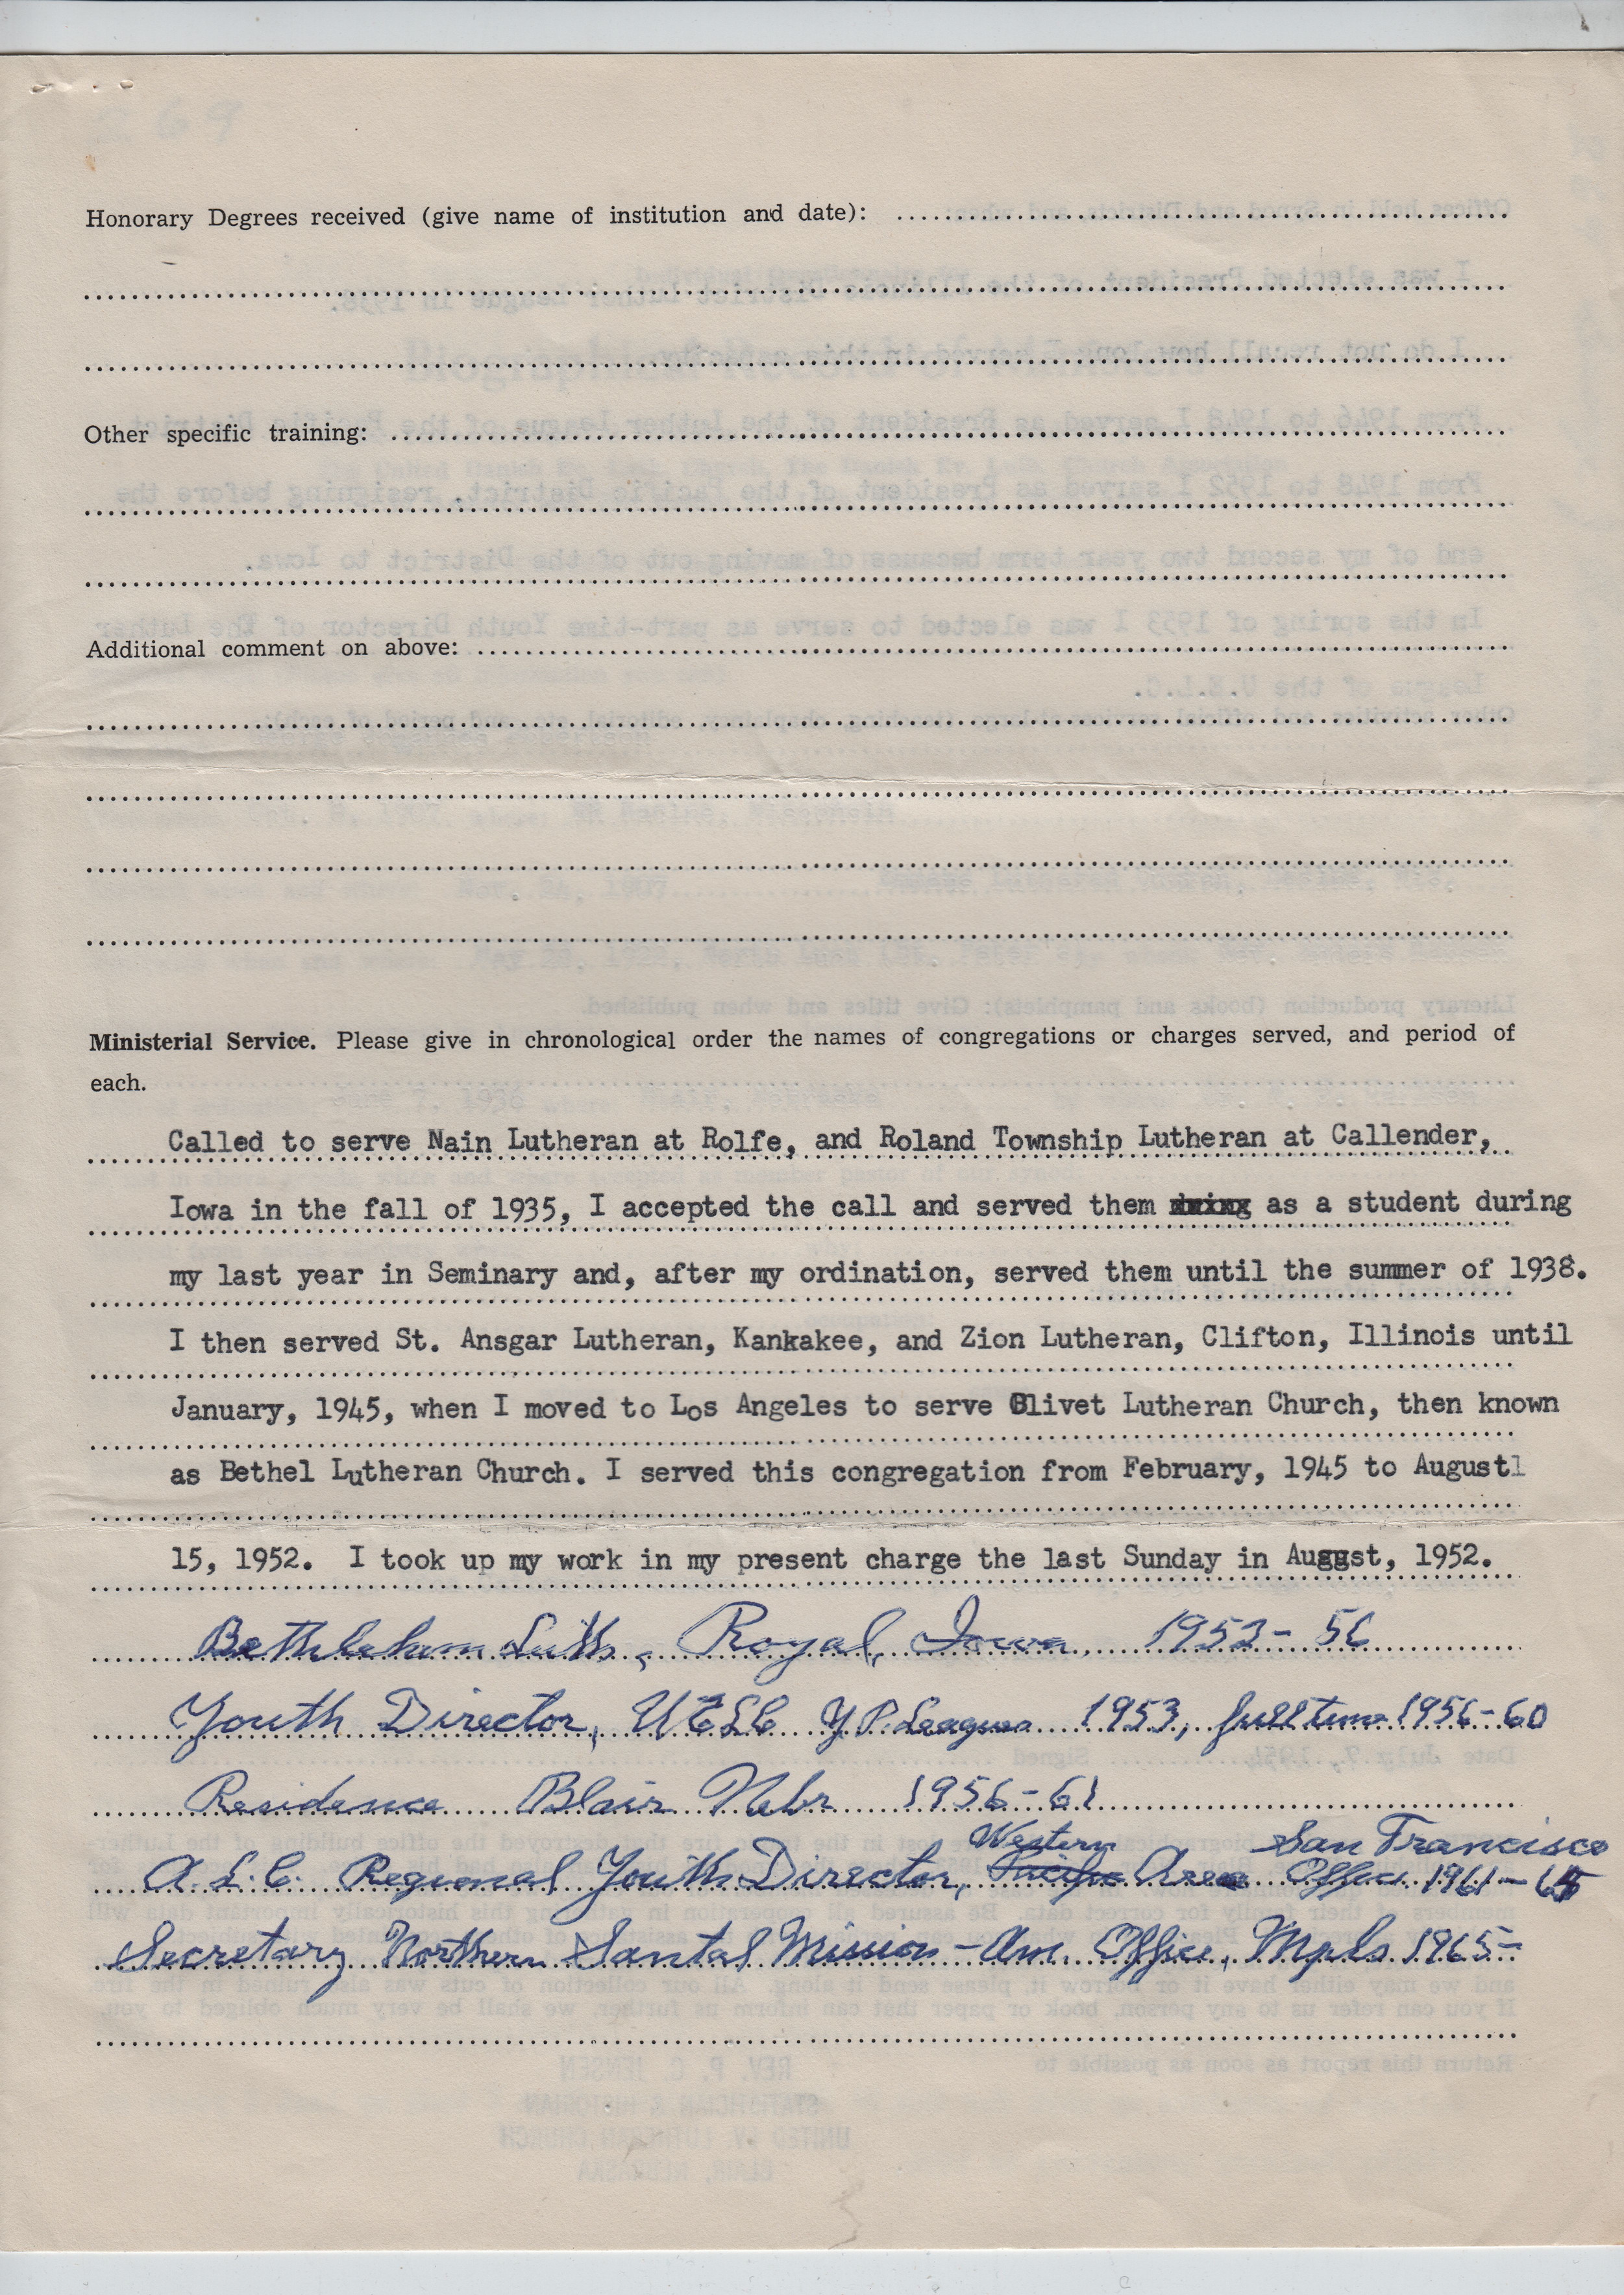 Honorary Degrees received (give name of institution and date):
Other specific training:
Additional comment on above:
Ministerial Service. Please give in chronological order the names of congregations or charges served, and period of
each.
Called to serve Nain Lutheran at Rolfe, and Roland Township Lutheran at Callender,
Iowa in the fall of 1935, I accepted the call and served them as a student during
my last year in Seminary and, after my ordination, served them until the summer of 1938.
I then served St. Ansgar Lutheran, Kankakee, and Zion Lutheran, Clifton, Illinois until
January, 1945, when I moved to Los Angeles to serve Olivet Lutheran Church, then known
as Bethel Lutheran Church. I served this congregation from February, 1945 to August
15, 1952. I took up my work in my present charge the last Sunday in August, 1952.
Bethlehem Luth, Royal, Iowa 1952-56
Youth Director, UELC Y.P. League 1953, full time 1956-60
Residence Blair Nebr 1956-61
Western San Francisco
A.L.C. Regional Youth Director, Pacific Area Office 1961-65
Secretary Northern Santal Mission - Am. Office, Mpls 1965-